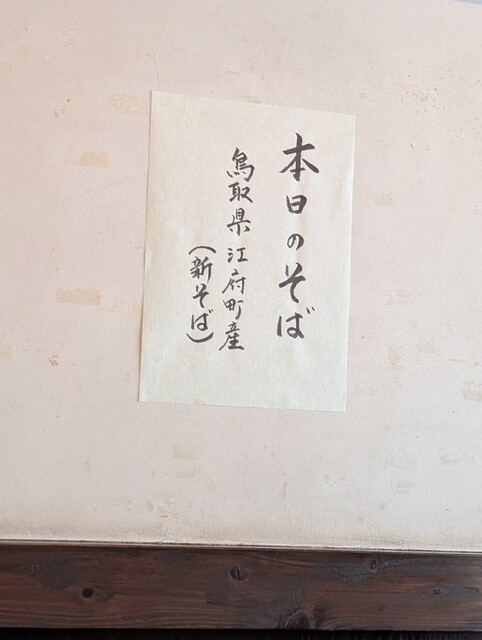 本日のそば
鳥取県江府町産
(新そば)